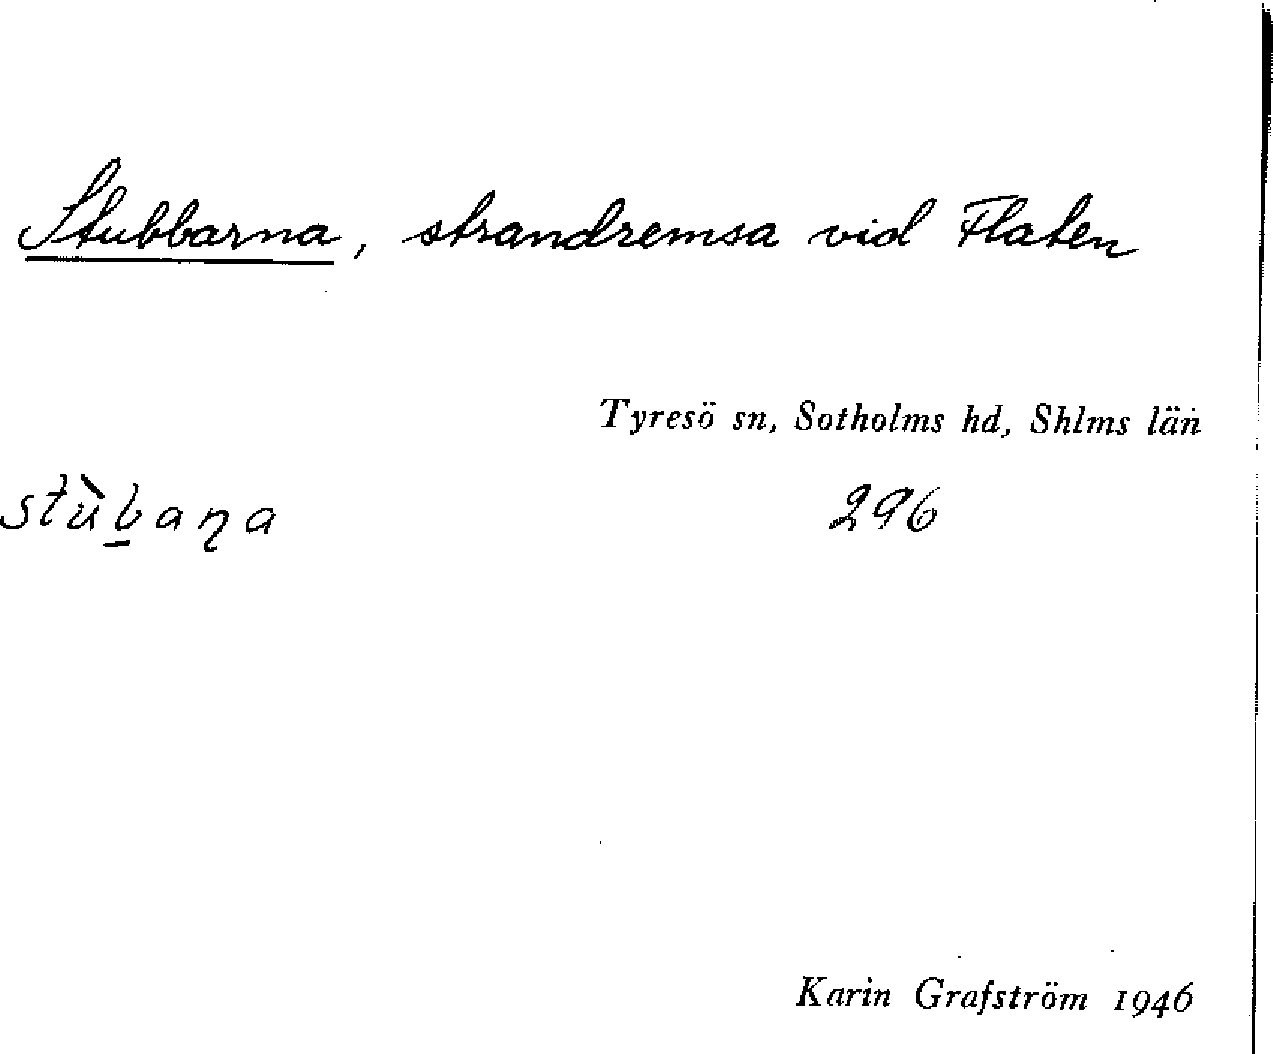 Stubbarna, strandremsa vid Flaten
Tyresö sn, Sotholms hd, Shlms län
stùb̲aꞃa 296
Karin Grafström 1946